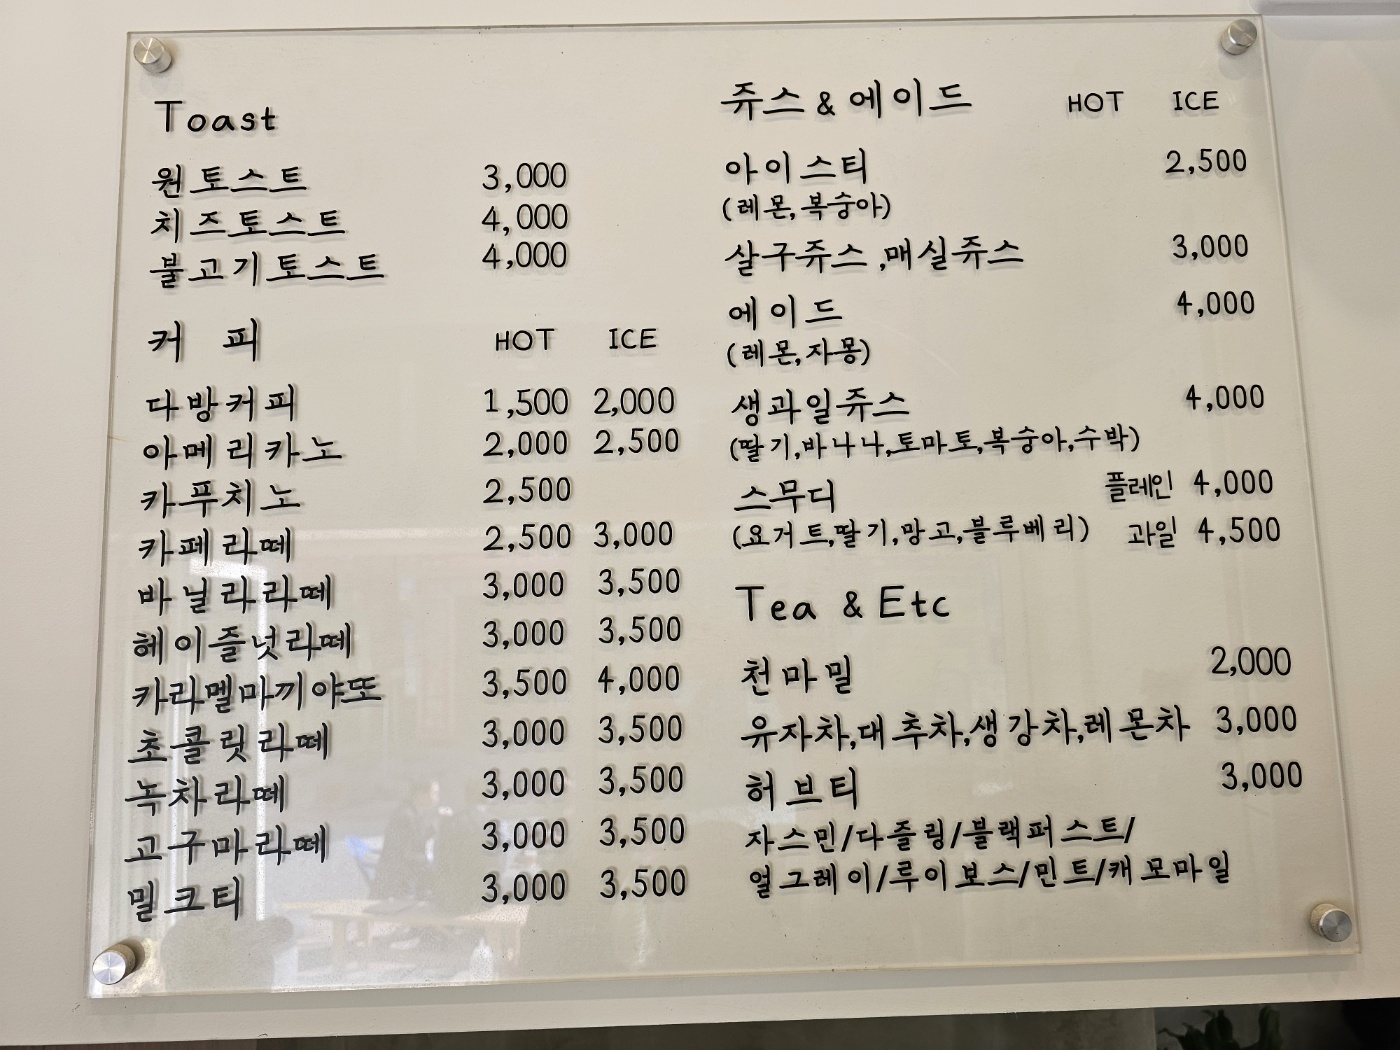 Toast
원토스트 3,000
치즈토스트 4,000
불고기토스트 4,000
커 피 HOT ICE
다방커피 1,500 2,000
아메리카노 2,000 2,500
카푸치노 2,500
카페라떼 2,500 3,000
바닐라라떼 3,000 3,500
헤이즐넛라떼 3,000 3,500
카라멜마끼야또 3,500 4,000
초콜릿라떼 3,000 3,500
녹차라떼 3,000 3,500
고구마라떼 3,000 3,500
밀크티 3,000 3,500
쥬스 & 에이드 HOT ICE
아이스티 2,500
(레몬,복숭아)
살구쥬스,매실쥬스 3,000
에이드 4,000
(레몬,자몽)
생과일쥬스 4,000
(딸기,바나나,토마토,복숭아,수박)
스무디 플레인 4,000
(요거트,딸기,망고,블루베리) 과일 4,500
Tea & Etc
천마밀 2,000
유자차,대추차,생강차,레몬차 3,000
허브티 3,000
자스민/다즐링/블랙퍼스트/
얼그레이/루이보스/민트/캐모마일